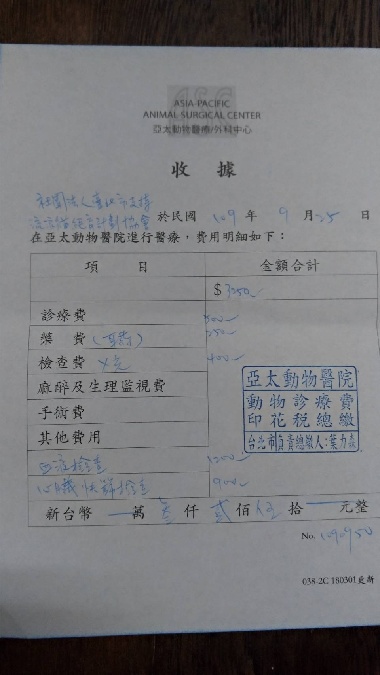 ASIA-PACIFIC
ANIMAL SURGICAL CENTER
亞太動物醫療/外科中心
收 據
社團法人臺北市支持
流浪貓絕育計劃協會 於民國 109 年 9 月 25 日
在亞太動物醫院進行醫療，費用明細如下：
項 目 金額合計
$ 3250
診療費 500
藥 費 250
檢查費 X光 400
麻醉及生理監視費
手術費
其他費用
亞太動物醫院
動物診療費
印花稅總繳
台北市負責總繳人:葉力森
血液檢查 1200
心臟 檢查 900
新台幣 萬 叁 仟 貳 佰 伍 拾 元整
No. 1090950
038-2C 180301更新